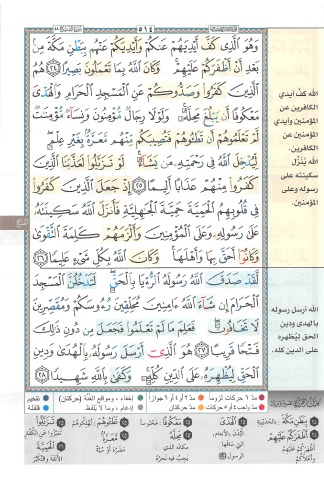 ٥١٤
وَهُوَ الَّذِي كَفَّ أَيْدِيَهُمْ عَنكُمْ وَأَيْدِيَكُمْ عَنْهُم بِبَطْنِ مَكَّةَ مِنْ
بَعْدِ أَنْ أَظْفَرَكُمْ عَلَيْهِمْ ۚ وَكَانَ اللَّهُ بِمَا تَعْمَلُونَ بَصِيرًا ﴿٢٤﴾ هُمُ
الَّذِينَ كَفَرُوا وَصَدُّوكُمْ عَنِ الْمَسْجِدِ الْحَرَامِ وَالْهَدْيَ
مَعْكُوفًا أَن يَبْلُغَ مَحِلَّهُ ۚ وَلَوْلَا رِجَالٌ مُّؤْمِنُونَ وَنِسَاءٌ مُّؤْمِنَاتٌ
لَّمْ تَعْلَمُوهُمْ أَن تَطَئُوهُمْ فَتُصِيبَكُم مِّنْهُم مَّعَرَّةٌ بِغَيْرِ عِلْمٍ ۖ
لِّيُدْخِلَ اللَّهُ فِي رَحْمَتِهِ مَن يَشَاءُ ۚ لَوْ تَزَيَّلُوا لَعَذَّبْنَا الَّذِينَ
كَفَرُوا مِنْهُمْ عَذَابًا أَلِيمًا ﴿٢٥﴾ إِذْ جَعَلَ الَّذِينَ كَفَرُوا
فِي قُلُوبِهِمُ الْحَمِيَّةَ حَمِيَّةَ الْجَاهِلِيَّةِ فَأَنزَلَ اللَّهُ سَكِينَتَهُ
عَلَىٰ رَسُولِهِ وَعَلَى الْمُؤْمِنِينَ وَأَلْزَمَهُمْ كَلِمَةَ التَّقْوَىٰ
وَكَانُوا أَحَقَّ بِهَا وَأَهْلَهَا ۚ وَكَانَ اللَّهُ بِكُلِّ شَيْءٍ عَلِيمًا ﴿٢٦﴾
لَّقَدْ صَدَقَ اللَّهُ رَسُولَهُ الرُّءْيَا بِالْحَقِّ ۖ لَتَدْخُلُنَّ الْمَسْجِدَ
الْحَرَامَ إِن شَاءَ اللَّهُ آمِنِينَ مُحَلِّقِينَ رُءُوسَكُمْ وَمُقَصِّرِينَ
لَا تَخَافُونَ ۖ فَعَلِمَ مَا لَمْ تَعْلَمُوا فَجَعَلَ مِن دُونِ ذَٰلِكَ
فَتْحًا قَرِيبًا ﴿٢٧﴾ هُوَ الَّذِي أَرْسَلَ رَسُولَهُ بِالْهُدَىٰ وَدِينِ
الْحَقِّ لِيُظْهِرَهُ عَلَى الدِّينِ كُلِّهِ ۚ وَكَفَىٰ بِاللَّهِ شَهِيدًا ﴿٢٨﴾
الله كف أيدي
الكافرين عن
المؤمنين وأيدي
المؤمنين عن
الكافرين.
الله يُنَزِّل
سكينته على
رسوله وعلى
المؤمنين.
الله أرسل رسوله
بالهدى ودين
الحق ليُظهره
على الدين كله.